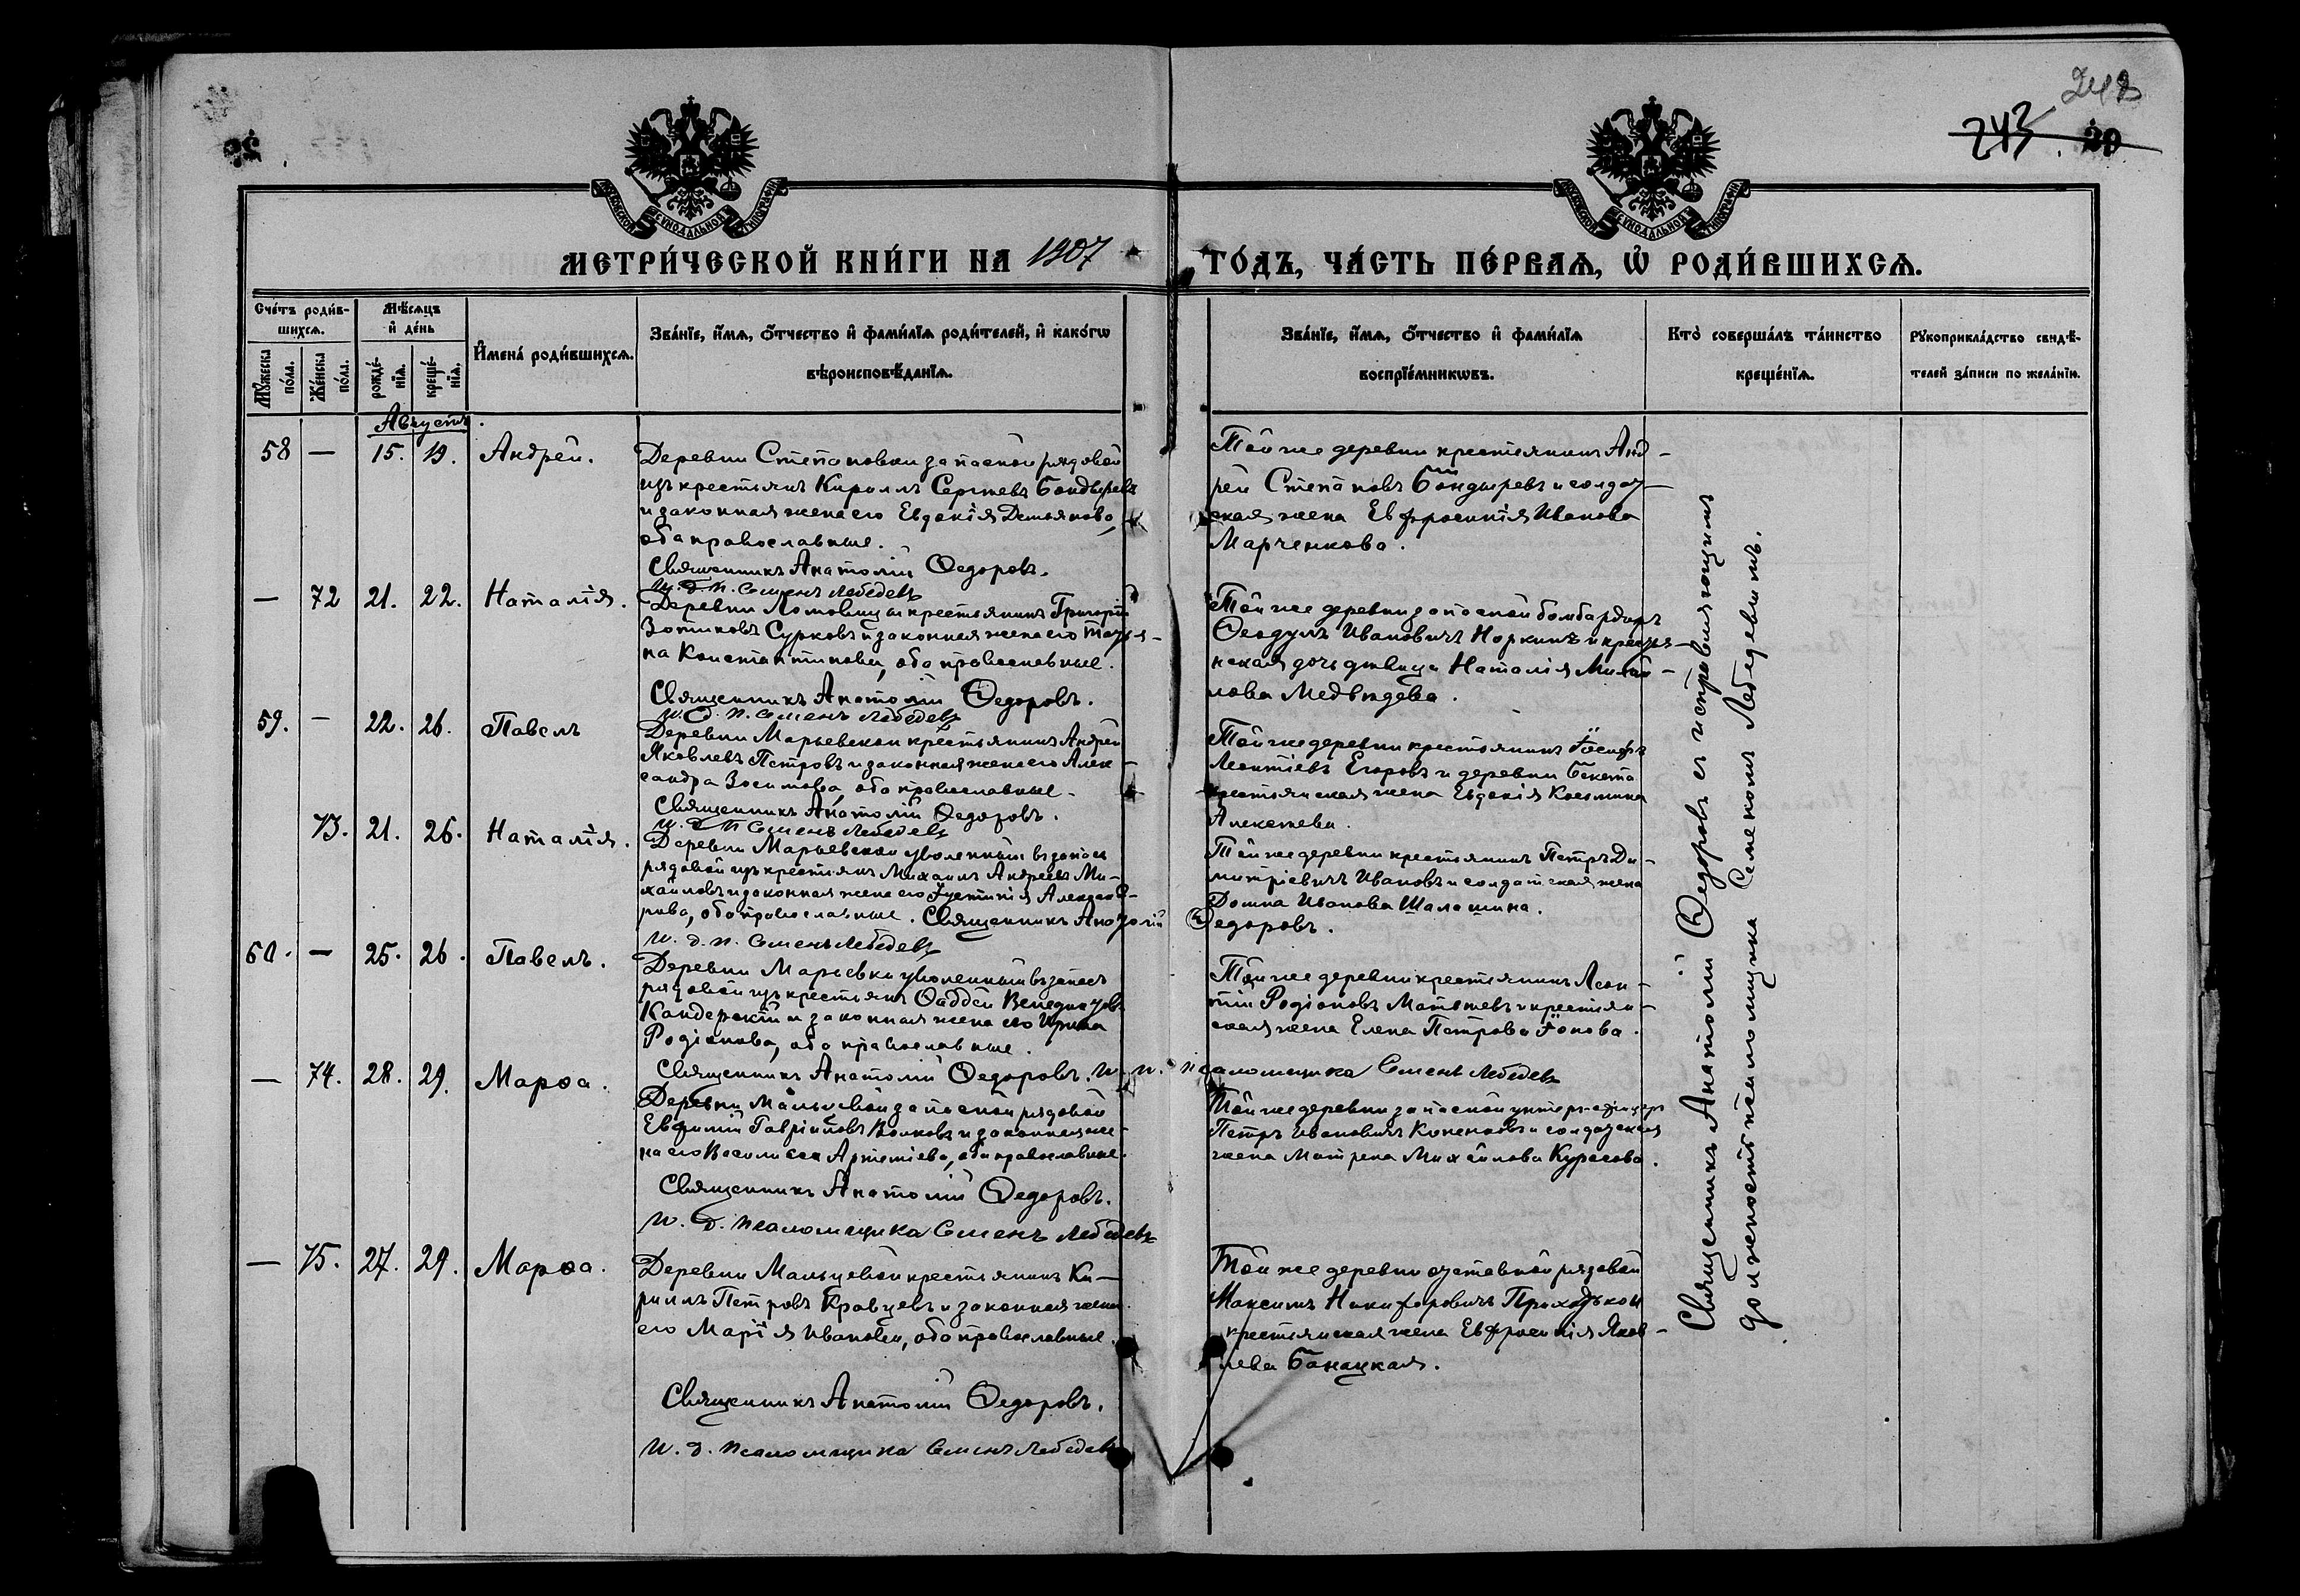 242
243. 29
МОСКОВСКОЙ СѴНОДАЛЬНОЙ ТИПОГРАФІИ
МОСКОВСКОЙ СѴНОДАЛЬНОЙ ТИПОГРАФІИ
МЕТРИ́ЧЕСКОЙ КНИ́ГИ НА 1907 ГО́ДЪ, ЧА́СТЬ ПЕ́РВАѦ, Ѡ҆ РОДИ́ВШИХСѦ.
Сче́тъ роди́в-
шихсѧ.
Мѣ́сѧцъ
и҆ де́нь
Мꙋ́жеска
по́ла.
Же́нска
по́ла.
рожде́-
нїѧ.
креще́-
нїѧ.
И҆мена̀ роди́вшихсѧ.
Зва́нїе, и҆́мѧ, ѻ҆́тчество и҆ фами́лїѧ роди́телей, и҆ како́гѡ
вѣроисповѣ́данїѧ.
Зва́нїе, и҆́мѧ, ѻ҆́тчество и҆ фами́лїѧ
воспрїе́мникѡвъ.
Кто̀ соверша́лъ та́инство
креще́нїѧ.
Рꙋкоприкла́дство свидѣ́-
телей за́писи по жела́нїю.
Августъ.
58 — 15. 19. Андрей.
Деревни Степановки запасной рядовой
изъ крестьянъ Кириллъ Сергѣевъ Бондыревъ
и законная жена его Евдокія Демьянова,
оба православные.
Священникъ Анатолій Ѳедоровъ.
И. д. п. Семенъ Лебедевъ
Той же деревни крестьянинъ Анд-
рей Степановъ Бондыревъ и солдат-
ская жена Евфросинія Иванова
Марченкова.
— 72 21. 22. Наталія.
Деревни Ломовицы крестьянинъ Григорій
Зотиковъ Сурковъ и законная жена его Татья-
на Константинова, оба православные.
Священникъ Анатолій Ѳедоровъ.
И. д. п. Семенъ Лебедевъ
Той же деревни запасной бомбардиръ
Ѳеодулъ Ивановичъ Норкинъ и крестья-
нская дочь дѣвица Наталія Михай-
лова Медвѣдева.
59. — 22. 26. Павелъ
Деревни Марьевской крестьянинъ Андрей
Яковлевъ Петровъ и законная жена его Алек-
сандра Зосимова, оба православные.
Священникъ Анатолій Ѳедоровъ.
И. д. п. Семенъ Лебедевъ
Той же деревни крестьянинъ Іосифъ
Леонтіевъ Егоровъ и деревни Бекета
крестьянская жена Евдокія Косьмина
Алексѣева.
73. 21. 26. Наталія.
Деревни Марьевской уволенный въ запасъ
рядовой изъ крестьянъ Михаилъ Андреевъ Ми-
хайловъ и законная жена его Іустинія Александ-
рова, оба православные. Священникъ Анатолій Ѳедоровъ.
И. д. п. Семенъ Лебедевъ
Той же деревни крестьянинъ Петръ Ди-
митріевичъ Ивановъ и солдатская жена
Домна Иванова Шалашина.
60. — 25. 26. Павелъ.
Деревни Марьевки уволенный въ запасъ
рядовой изъ крестьянъ Ѳаддей Венедиктовъ
Кандерскій и законная жена его Ирина
Родіонова, оба православные.
Священникъ Анатолій Ѳедоровъ. И. д. псаломщика Семенъ Лебедевъ
Той же деревни крестьянинъ Леон-
тій Родіоновъ Матвѣевъ и крестьян-
ская жена Елена Петрова Іонова.
— 74. 28. 29. Марѳа.
Деревни Мальцевой запасной рядовой
Евфимій Гавріиловъ Волковъ и законная же-
на его Василисса Артемьева, оба православные.
Священникъ Анатолій Ѳедоровъ.
И. д. псаломщика Семенъ Лебедевъ
Той же деревни запасной унтеръ-офицеръ
Петръ Ивановичъ Коненковъ и солдатская
жена Матрена Михайлова Курасова.
— 75. 27. 29. Марѳа.
Деревни Мальцевой крестьянинъ Ки-
риллъ Петровъ Кравцевъ и законная жена
его Марія Иванова, оба православные.
Священникъ Анатолій Ѳедоровъ.
И. д. псаломщика Семенъ Лебедевъ
Той же деревни отставной рядовой
Максимъ Никифоровичъ Приходько и
крестьянская жена Евфросинія Яков-
лева Банацкая.
Священникъ Анатолій Ѳедоровъ съ исправляющимъ
должность псаломщика Семеномъ Лебедевымъ.